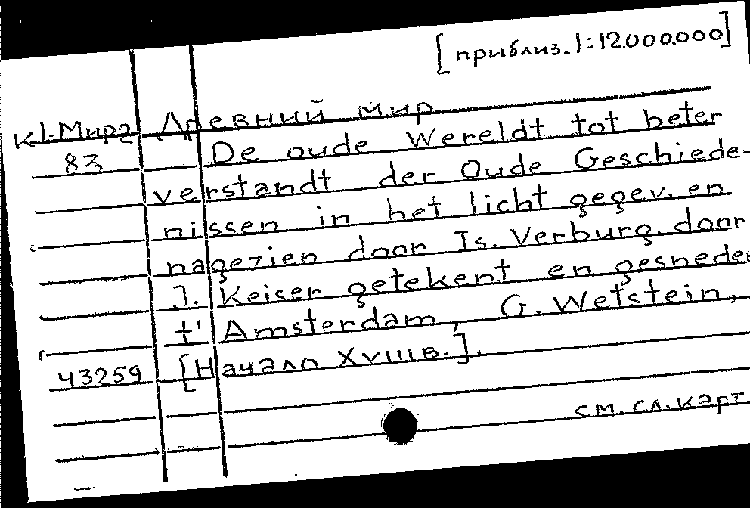 [приблиз. 1:12.000.000]
К1-Мира Древний мир
83 De oude Wereldt tot beter
verstandt der Oude Geschiede-
nissen in het licht gegev. en
nagezien door Is. Verburg. door
J. Keiser getekent en gesneden
t' Amsterdam, G. Wetstein,
43259 [Начало XVIIIв.].
см. сл. карт